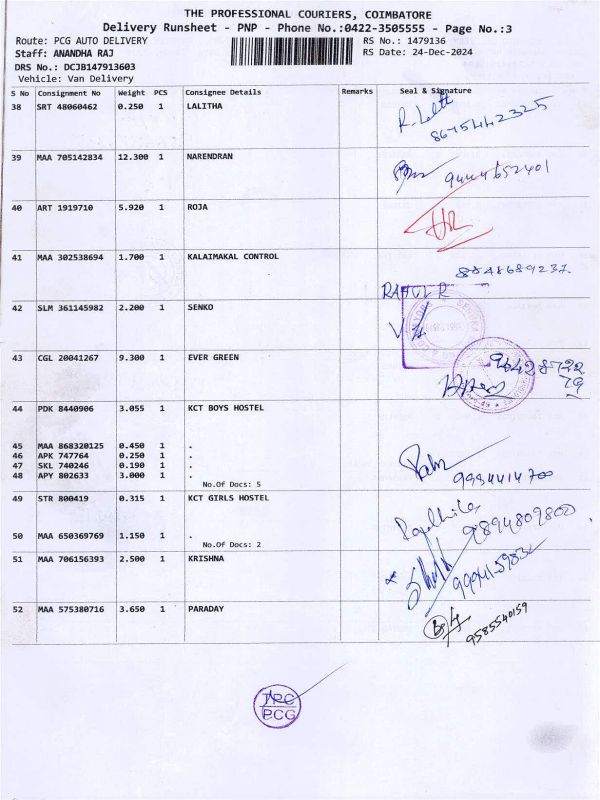 THE PROFESSIONAL COURIERS, COIMBATORE
Delivery Runsheet - PNP - Phone No.:0422-3505555 - Page No.:3
Route: PCG AUTO DELIVERY RS No.: 1479136
Staff: ANANDHA RAJ RS Date: 24-Dec-2024
DRS No.: DCJB147913603
Vehicle: Van Delivery
S No Consignment No Weight PCS Consignee Details Remarks Seal & Signature
38 SRT 48060462 0.250 1 LALITHA
8675442325
39 MAA 705142834 12.300 1 NARENDRAN
9444652401
40 ART 1919710 5.920 1 ROJA
41 MAA 302538694 1.700 1 KALAIMAKAL CONTROL
8848689237
RAHUL R
42 SLM 361145982 2.200 1 SENKO
43 CGL 20041267 9.300 1 EVER GREEN
9642872279
44 PDK 8440906 3.055 1 KCT BOYS HOSTEL
45 MAA 868320125 0.450 1 .
46 APK 747764 0.250 1 .
47 SKL 740246 0.190 1 .
48 APY 802633 3.000 1 .
No.Of Docs: 5
9994414700
49 STR 800419 0.315 1 KCT GIRLS HOSTEL
9894809800
50 MAA 650369769 1.150 1 .
No.Of Docs: 2
51 MAA 706156393 2.500 1 KRISHNA
52 MAA 575380716 3.650 1 PARADAY
9585540159
PCG